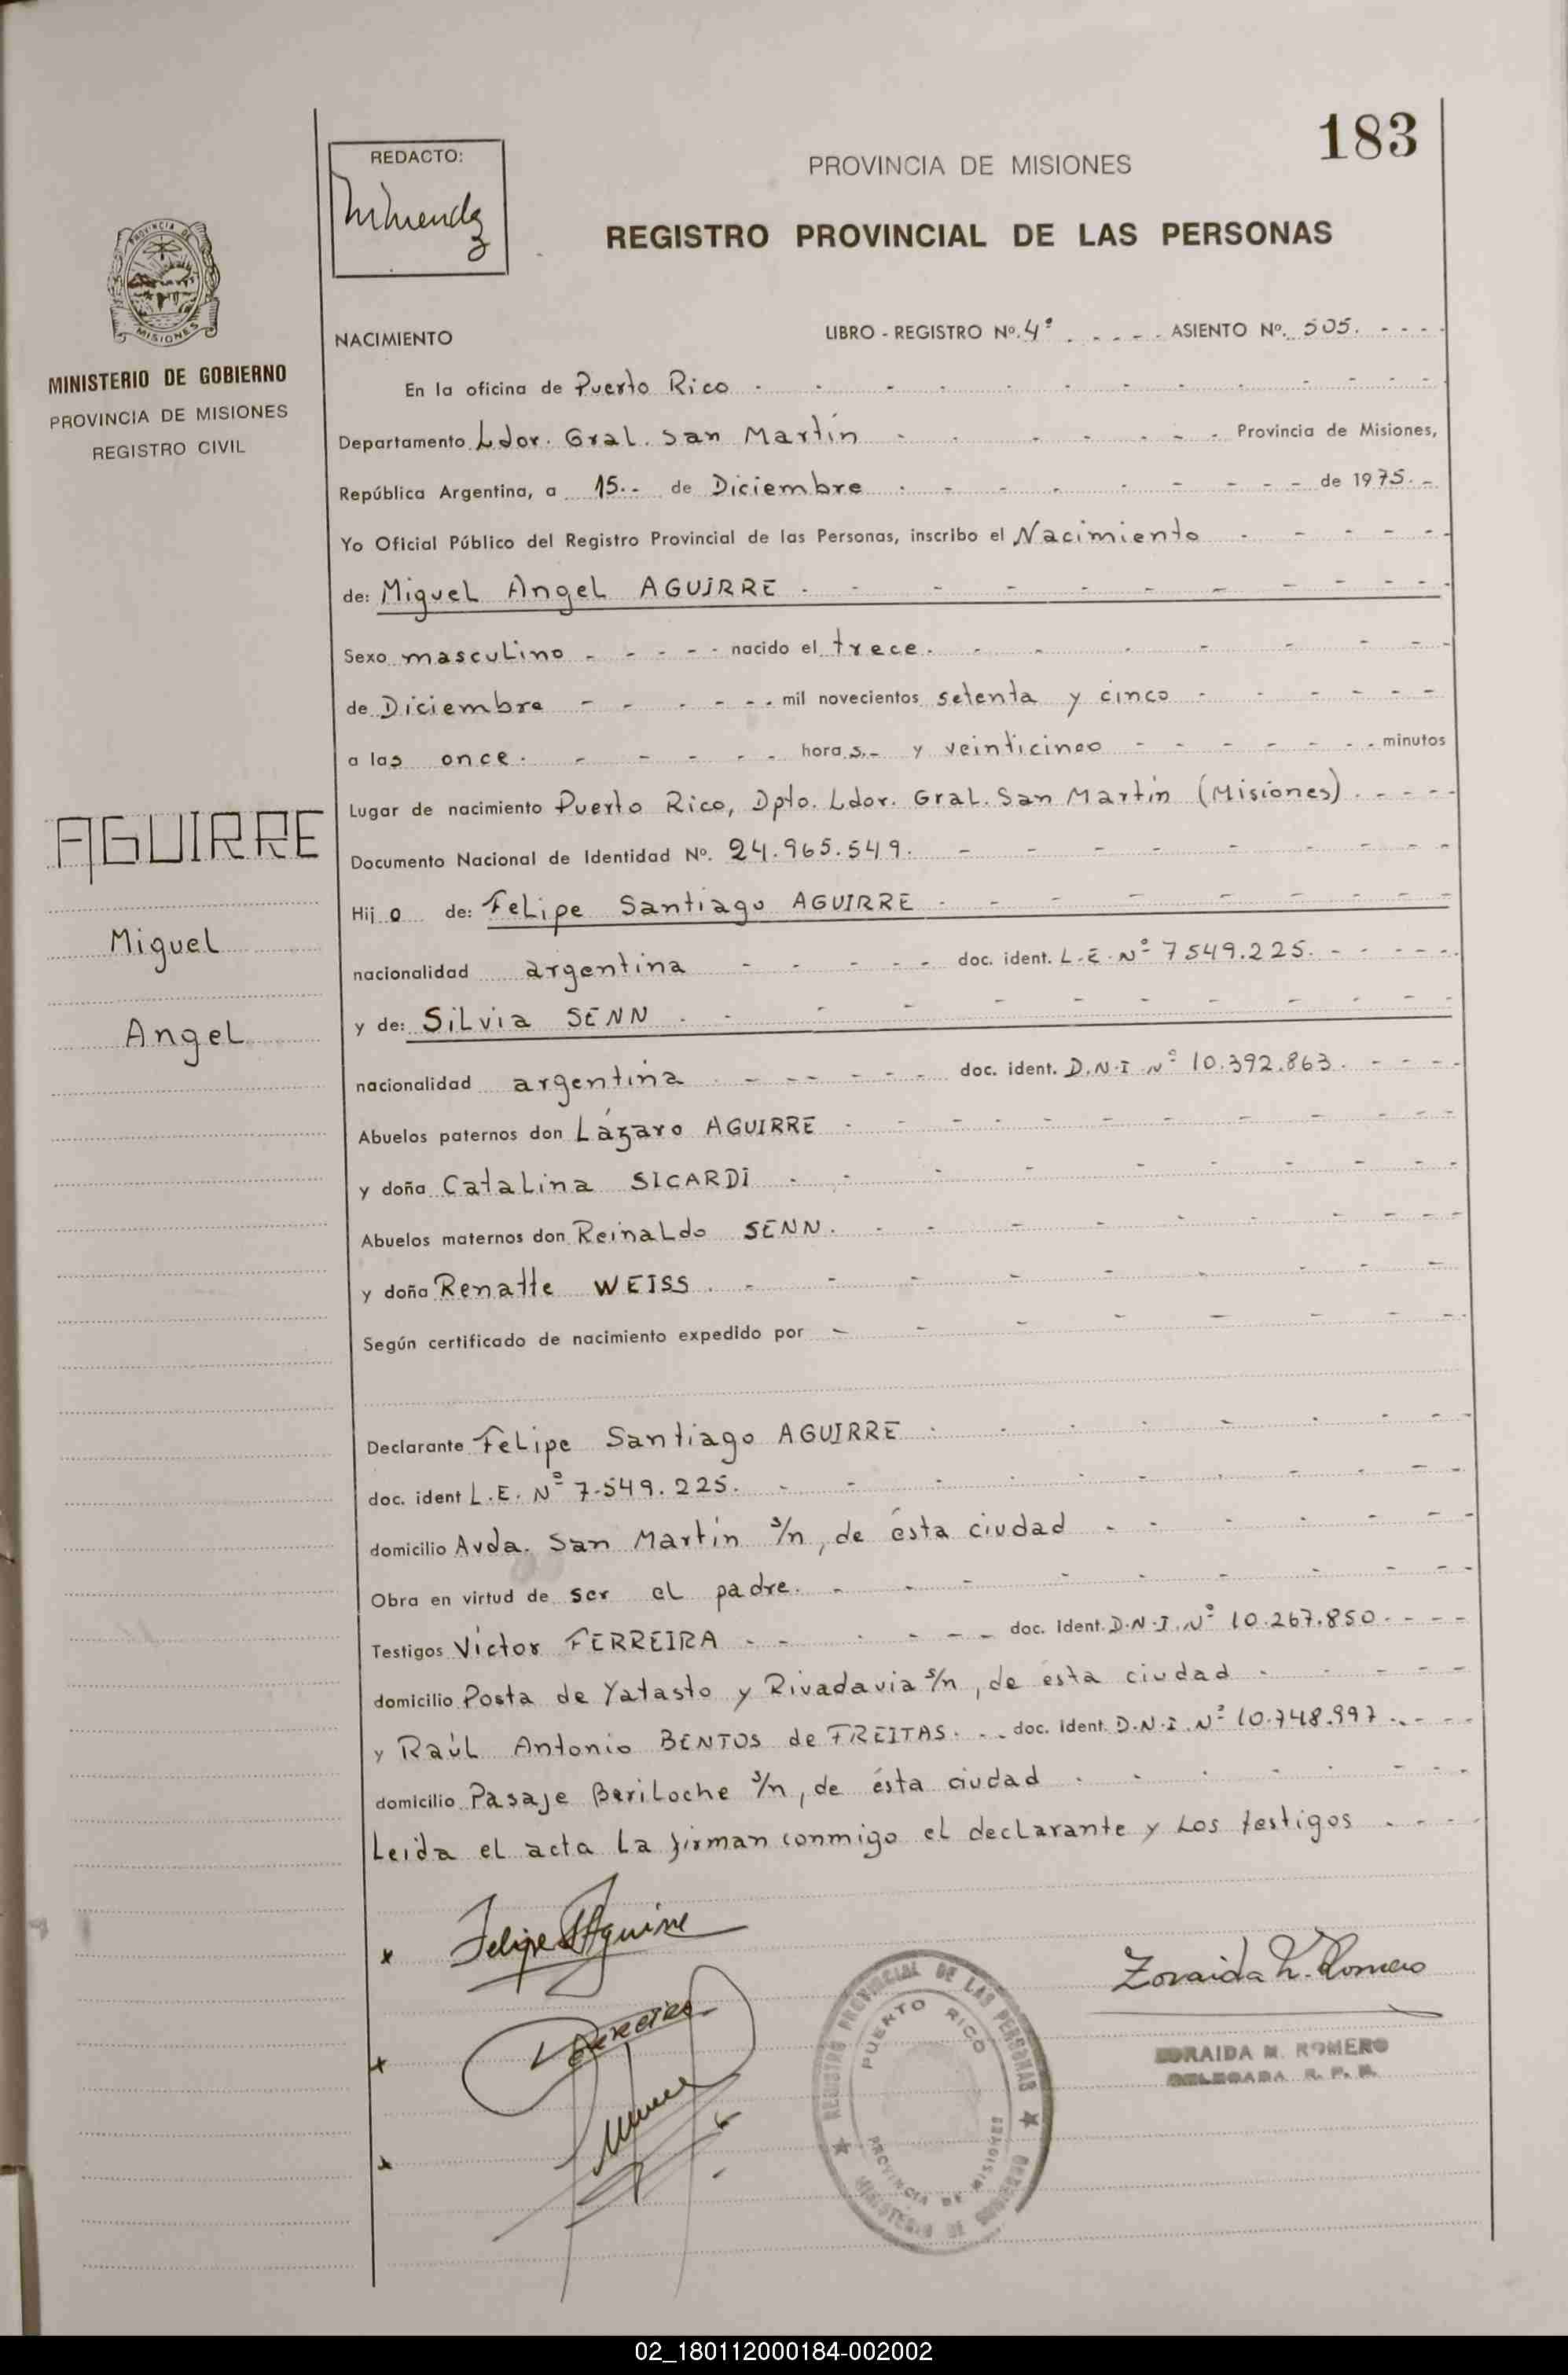 183
REDACTO:
PROVINCIA DE MISIONES
REGISTRO PROVINCIAL DE LAS PERSONAS
PROVINCIA DE
MISIONES
MINISTERIO DE GOBIERNO
PROVINCIA DE MISIONES
REGISTRO CIVIL
AGUIRRE
Miguel
Angel
NACIMIENTO LIBRO - REGISTRO Nº. 4º - - - - ASIENTO Nº. 505. - - - -
En la oficina de Puerto Rico - - - - - - - - - -
Departamento Ldor. Gral. San Martín - - - - - - - Provincia de Misiones,
República Argentina, a 15.- de Diciembre - - - - - - - - de 1975. -
Yo Oficial Público del Registro Provincial de las Personas, inscribo el Nacimiento - - - - -
de: Miguel Angel AGUIRRE - - - - - - - - - -
Sexo masculino - - - - - nacido el trece. - - - - - - - -
de Diciembre - - - - - - mil novecientos setenta y cinco - - - - - -
a las once. - - - - - - horas.- y veinticinco - - - - - - - minutos
Lugar de nacimiento Puerto Rico, Dpto. Ldor. Gral. San Martín (Misiones). - - - -
Documento Nacional de Identidad Nº. 24.965.549. - - - - - - - - -
Hijo de: Felipe Santiago AGUIRRE - - - - - - - - -
nacionalidad argentina - - - - - - doc. ident. L.E. Nº 7549.225. - - - - - -
y de: Silvia SENN - - - - - - - - - -
nacionalidad argentina - - - - - - - doc. ident. D.N.I Nº 10.392.863. - - - -
Abuelos paternos don Lázaro AGUIRRE - - - - - - - - - -
y doña Catalina SICARDI - - - - - - - - -
Abuelos maternos don Reinaldo SENN. - - - - - - - - - -
y doña Renatte WEISS - - - - - - - - -
Según certificado de nacimiento expedido por - - - - - - - -
Declarante Felipe Santiago AGUIRRE - - - - - - - -
doc. ident L.E. Nº 7.549.225. - - - - - - - - - -
domicilio Avda. San Martín s/n, de ésta ciudad - - - - - - -
Obra en virtud de ser el padre. - - - - - - - - - -
Testigos Víctor FERREIRA - - - - - - doc. ident. D.N.I. Nº 10.267.850. - - -
domicilio Posta de Yatasto y Rivadavia s/n, de ésta ciudad - - - - -
y Raúl Antonio BENTOS de FREITAS. - - doc. ident. D.N.I. Nº 10.748.997 - - - -
domicilio Pasaje Bariloche s/n, de ésta ciudad - - - - - - - -
Leida el acta la firman conmigo el declarante y los testigos - - - -
x Felipe S Aguirre
x
x
Zoraida M. Romero
ZORAIDA M. ROMERO
DELEGADA R. P. P.
REGISTRO PROVINCIAL DE LAS PERSONAS
PUERTO RICO
PROVINCIA DE MISIONES
MINISTERIO DE GOBIERNO
02_180112000184-002002